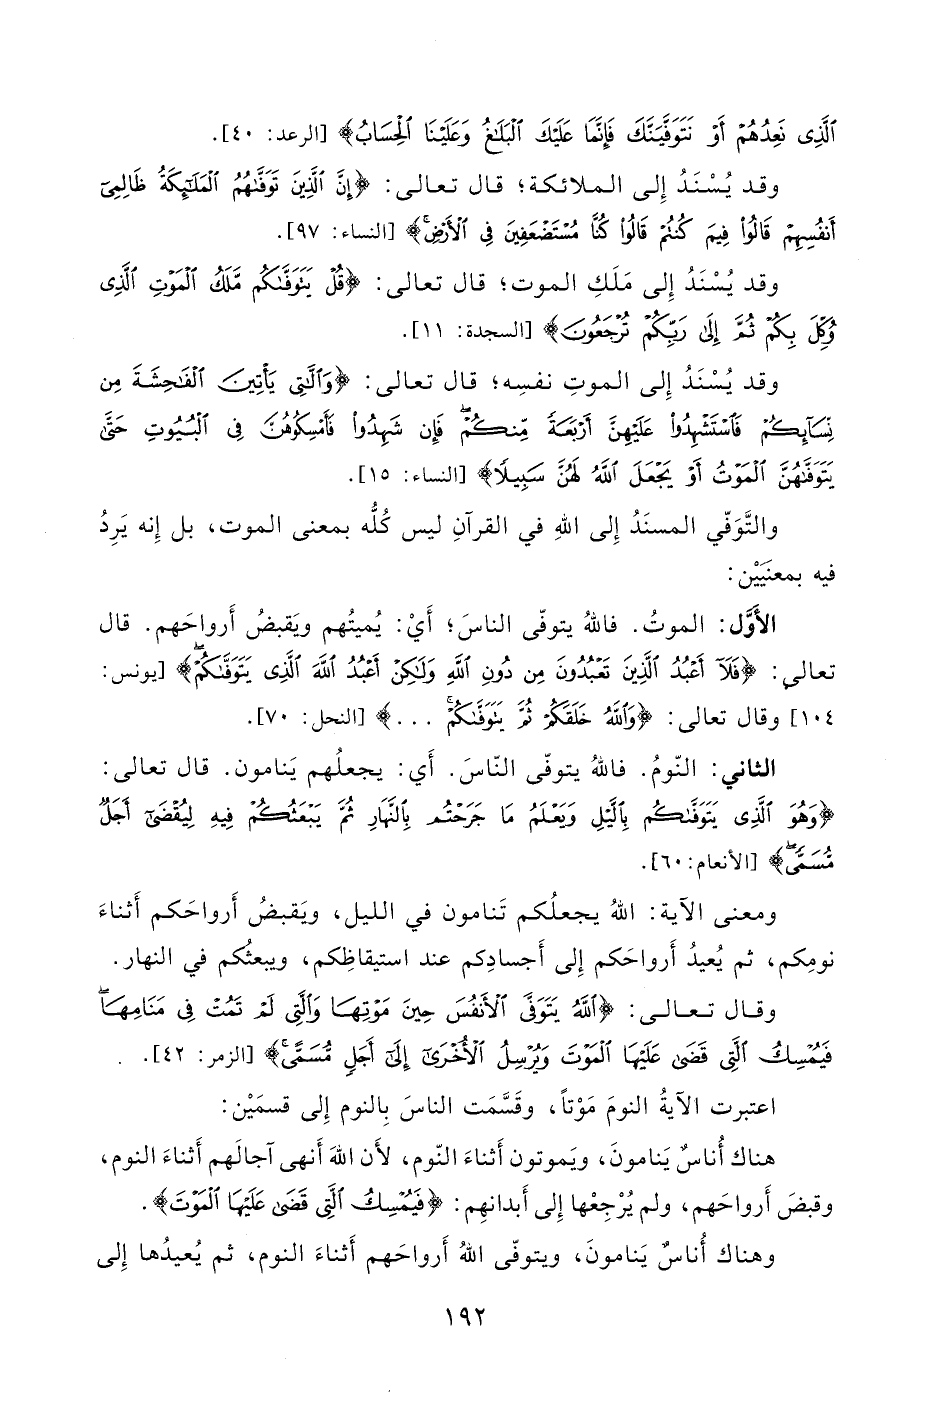 ٱلَّذِى نَعِدُهُمْ أَوْ نَتَوَفَّيَنَّكَ فَإِنَّمَا عَلَيْكَ ٱلْبَلَٰغُ وَعَلَيْنَا ٱلْحِسَابُ﴾ [الرعد: ٤٠].
وقد يُسْنَدُ إِلى الملائكة؛ قال تعالى: ﴿إِنَّ ٱلَّذِينَ تَوَفَّىٰهُمُ ٱلْمَلَٰٓئِكَةُ ظَالِمِىٓ
أَنفُسِهِمْ قَالُوا۟ فِيمَ كُنتُمْ قَالُوا۟ كُنَّا مُسْتَضْعَفِينَ فِى ٱلْأَرْضِۚ﴾ [النساء: ٩٧].
وقد يُسْنَدُ إِلى مَلَكِ الموت؛ قال تعالى: ﴿قُلْ يَتَوَفَّىٰكُم مَّلَكُ ٱلْمَوْتِ ٱلَّذِى
وُكِّلَ بِكُمْ ثُمَّ إِلَىٰ رَبِّكُمْ تُرْجَعُونَ﴾ [السجدة: ١١].
وقد يُسْنَدُ إِلى الموتِ نفسِه؛ قال تعالى: ﴿وَٱلَّٰتِى يَأْتِينَ ٱلْفَٰحِشَةَ مِن
نِّسَآئِكُمْ فَٱسْتَشْهِدُوا۟ عَلَيْهِنَّ أَرْبَعَةً مِّنكُمْۖ فَإِن شَهِدُوا۟ فَأَمْسِكُوهُنَّ فِى ٱلْبُيُوتِ حَتَّىٰ
يَتَوَفَّىٰهُنَّ ٱلْمَوْتُ أَوْ يَجْعَلَ ٱللَّهُ لَهُنَّ سَبِيلًا﴾ [النساء: ١٥].
والتَّوَفّي المسنَدُ إِلى اللهِ في القرآنِ ليس كُلُّه بمعنى الموت، بل إِنه يَرِدُ
فيه بمعنَيَيْن:
الأَوَّل: الموتُ. فاللهُ يتوفّى الناسَ؛ أَيْ: يُميتُهم ويَقبضُ أَرواحَهم. قال
تعالى: ﴿فَلَآ أَعْبُدُ ٱلَّذِينَ تَعْبُدُونَ مِن دُونِ ٱللَّهِ وَلَٰكِنْ أَعْبُدُ ٱللَّهَ ٱلَّذِى يَتَوَفَّىٰكُمْۖ﴾ [يونس:
١٠٤] وقال تعالى: ﴿وَٱللَّهُ خَلَقَكُمْ ثُمَّ يَتَوَفَّىٰكُمْۚ ...﴾ [النحل: ٧٠].
الثاني: النّومُ. فاللهُ يتوفّى النّاسَ. أَي: يجعلُهم يَنامون. قال تعالى:
﴿وَهُوَ ٱلَّذِى يَتَوَفَّىٰكُم بِٱلَّيْلِ وَيَعْلَمُ مَا جَرَحْتُم بِٱلنَّهَارِ ثُمَّ يَبْعَثُكُمْ فِيهِ لِيُقْضَىٰٓ أَجَلٌ
مُّسَمًّىۖ﴾ [الأنعام: ٦٠].
ومعنى الآية: اللهُ يجعلُكم تَنامون في الليل، ويَقبضُ أَرواحَكم أَثناءَ
نومِكم، ثم يُعيدُ أَرواحَكم إِلى أَجسادِكم عند استيقاظِكم، ويبعثُكم في النهار.
وقال تعالى: ﴿ٱللَّهُ يَتَوَفَّى ٱلْأَنفُسَ حِينَ مَوْتِهَا وَٱلَّتِى لَمْ تَمُتْ فِى مَنَامِهَاۖ
فَيُمْسِكُ ٱلَّتِى قَضَىٰ عَلَيْهَا ٱلْمَوْتَ وَيُرْسِلُ ٱلْأُخْرَىٰٓ إِلَىٰٓ أَجَلٍ مُّسَمًّىۚ﴾ [الزمر: ٤٢].
اعتبرت الآيةُ النومَ مَوْتاً، وقَسَّمَت الناسَ بِالنوم إِلى قسمَيْن:
هناك أُناسٌ يَنامونَ، ويَموتون أَثناءَ النّوم، لأَن اللهَ أَنهى آجالَهم أَثناءَ النوم،
وقبضَ أَرواحَهم، ولم يُرْجِعْها إِلى أَبدانِهم: ﴿فَيُمْسِكُ ٱلَّتِى قَضَىٰ عَلَيْهَا ٱلْمَوْتَ﴾.
وهناك أُناسٌ يَنامونَ، ويتوفّى اللهُ أَرواحَهم أَثناءَ النوم، ثم يُعيدُها إِلى
١٩٢